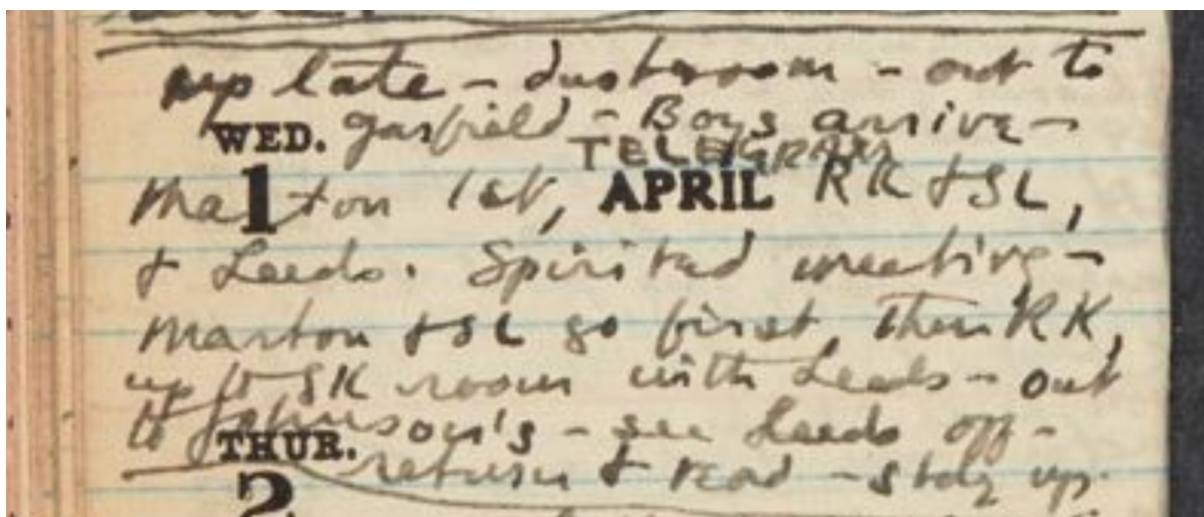 up late - dustroom - out to
WED. garfield - Boys arrive -
TELEGRAM
1 Marton 1st, APRIL RK + SL,
+ Leeds. Spirited meeting -
Marton + SL go first, then RK,
up to SK room with Leeds - out
to Johnson's - see Leeds off -
THUR. return + read - stay up.
2